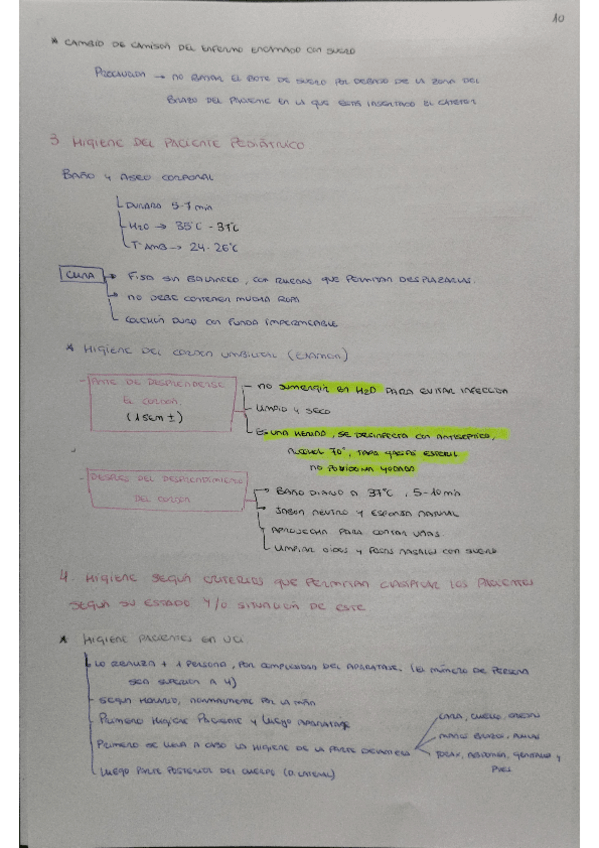 10
* CAMBIO DE CAMISÓN DEL ENFERMO ENCAMADO CON SUERO
PRECAUCIÓN → NO BAJAR EL BOTE DE SUERO POR DEBAJO DE LA ZONA DEL
BRAZO DEL PACIENTE EN LA QUE ESTÁ INSERTADO EL CATÉTER
3. HIGIENE DEL PACIENTE PEDIÁTRICO
BAÑO Y ASEO CORPORAL
DURARÁ 5-7 min
H2O → 35°C - 37°C
Tª AMB → 24-26°C
CUNA → FIJA SIN BALANCEO, CON RUEDAS QUE PERMITAN DESPLAZARLAS.
NO DEBE CONTENER MUCHA ROPA
COLCHÓN DURO CON FUNDA IMPERMEABLE
* HIGIENE DEL CORDÓN UMBILICAL (EXAMEN)
ANTES DE DESPRENDERSE
EL CORDÓN
(1 SEM ±)
NO SUMERGIR EN H2O PARA EVITAR INFECCIÓN
LIMPIO Y SECO
ES UNA HERIDA, SE DESINFECTA CON ANTISÉPTICO,
ALCOHOL 70°, TAPA GASAS ESTÉRIL
NO POVIDONA YODADA
DESPUÉS DEL DESPRENDIMIENTO
DEL CORDÓN
BAÑO DIARIO A 37°C, 5-10 min
JABÓN NEUTRO Y ESPONJA NATURAL
APROVECHA PARA CORTAR UÑAS.
LIMPIAR OÍDOS Y FOSAS NASALES CON SUERO
4. HIGIENE SEGÚN CRITERIOS QUE PERMITAN CLASIFICAR LOS PACIENTES
SEGÚN SU ESTADO Y/O SITUACIÓN DE ESTE
* HIGIENE PACIENTES EN UCI.
LO REALIZA + 1 PERSONA, POR COMPLEJIDAD DEL APARATAJE. (EL NÚMERO DE PERSONA
SEA SUPERIOR A 4)
SEGÚN HORARIO, NORMALMENTE POR LA MAÑ
PRIMERO HIGIENE PACIENTE Y LUEGO APARATAJE
PRIMERO SE LLEVA A CABO LA HIGIENE DE LA PARTE DELANTERA
CARA, CUELLO, OREJAS
MANOS BRAZOS, AXILAS
TÓRAX, ABDOMEN, GENITALES Y
PIES
LUEGO PARTE POSTERIOR DEL CUERPO (D. LATERAL)